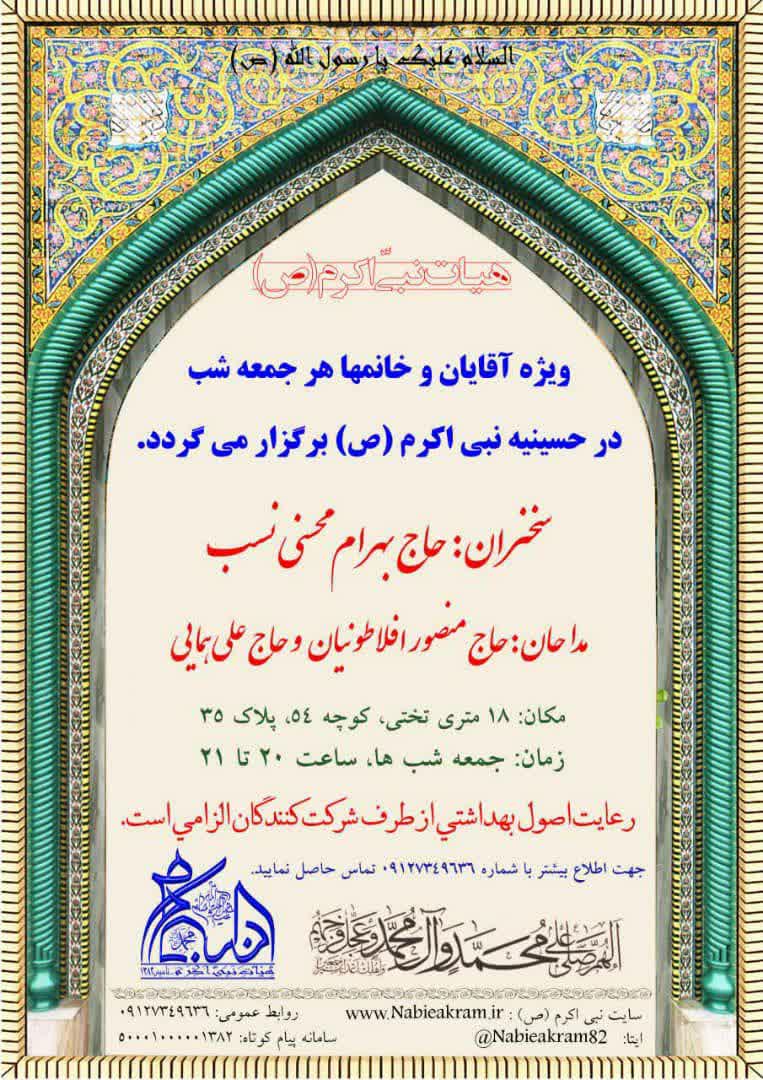 السلام علیک یا رسول الله (ص)
هیات نبیّ اکرم (ص)
ویژه آقایان و خانمها هر جمعه شب
در حسینیه نبی اکرم (ص) برگزار می گردد.
سخنران: حاج بهرام محسنی نسب
مداحان: حاج منصور افلاطونیان و حاج علی همایی
مکان: ۱۸ متری تختی، کوچه ٥٤، پلاک ۳٥
زمان: جمعه شب ها، ساعت ۲۰ تا ۲۱
رعایت اصول بهداشتي از طرف شرکت کنندگان الزامي است.
جهت اطلاع بیشتر با شماره ۰۹۱۲۷۳٤۹٦۳٦ تماس حاصل نمایید.
اللهم صل علی محمد وآل محمد وعجل فرجهم
هیات نبی اکرم
سایت نبی اکرم (ص) : www.Nabieakram.ir
روابط عمومی: ۰۹۱۲۷۳٤۹٦۳٦
ایتا: @Nabieakram82
سامانه پیام کوتاه: ٥۰۰۰۱۰۰۰۰۰۱۳۸۲